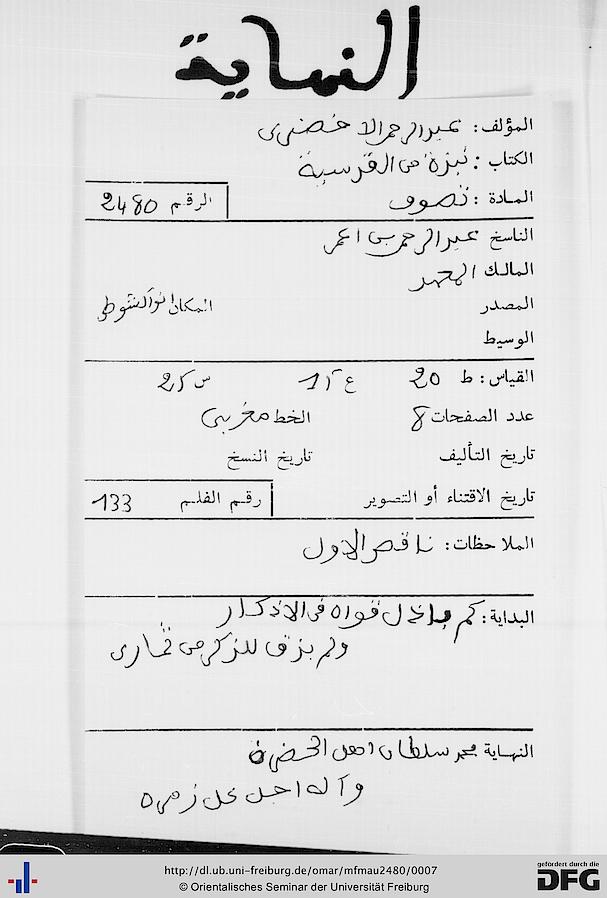 النهاية
المؤلف: عبد الرحمن الاخضرى
الكتاب: نبذة من القدسية
المادة: تصوف
الرقم 2480
الناسخ عبد الرحمن بن اعمر
المالك
المصدر
المكان انواكشوط
الوسيط
القياس: ط 20 ع 15 س 25
عدد الصفحات 8
الخط مغربى
تاريخ التأليف
تاريخ النسخ
تاريخ الاقتناء أو التصوير
رقم الفلم 133
الملاحظات: ناقص الاول
البداية: كم باذل قواه فى الاذكار
ولم يذق للذكر من ثمار
النهاية محمد سلطان اهل الحضره
وآله اجل كل زمره
http://dl.ub.uni-freiburg.de/omar/mfmau2480/0007
© Orientalisches Seminar der Universität Freiburg
gefördert durch die
DFG